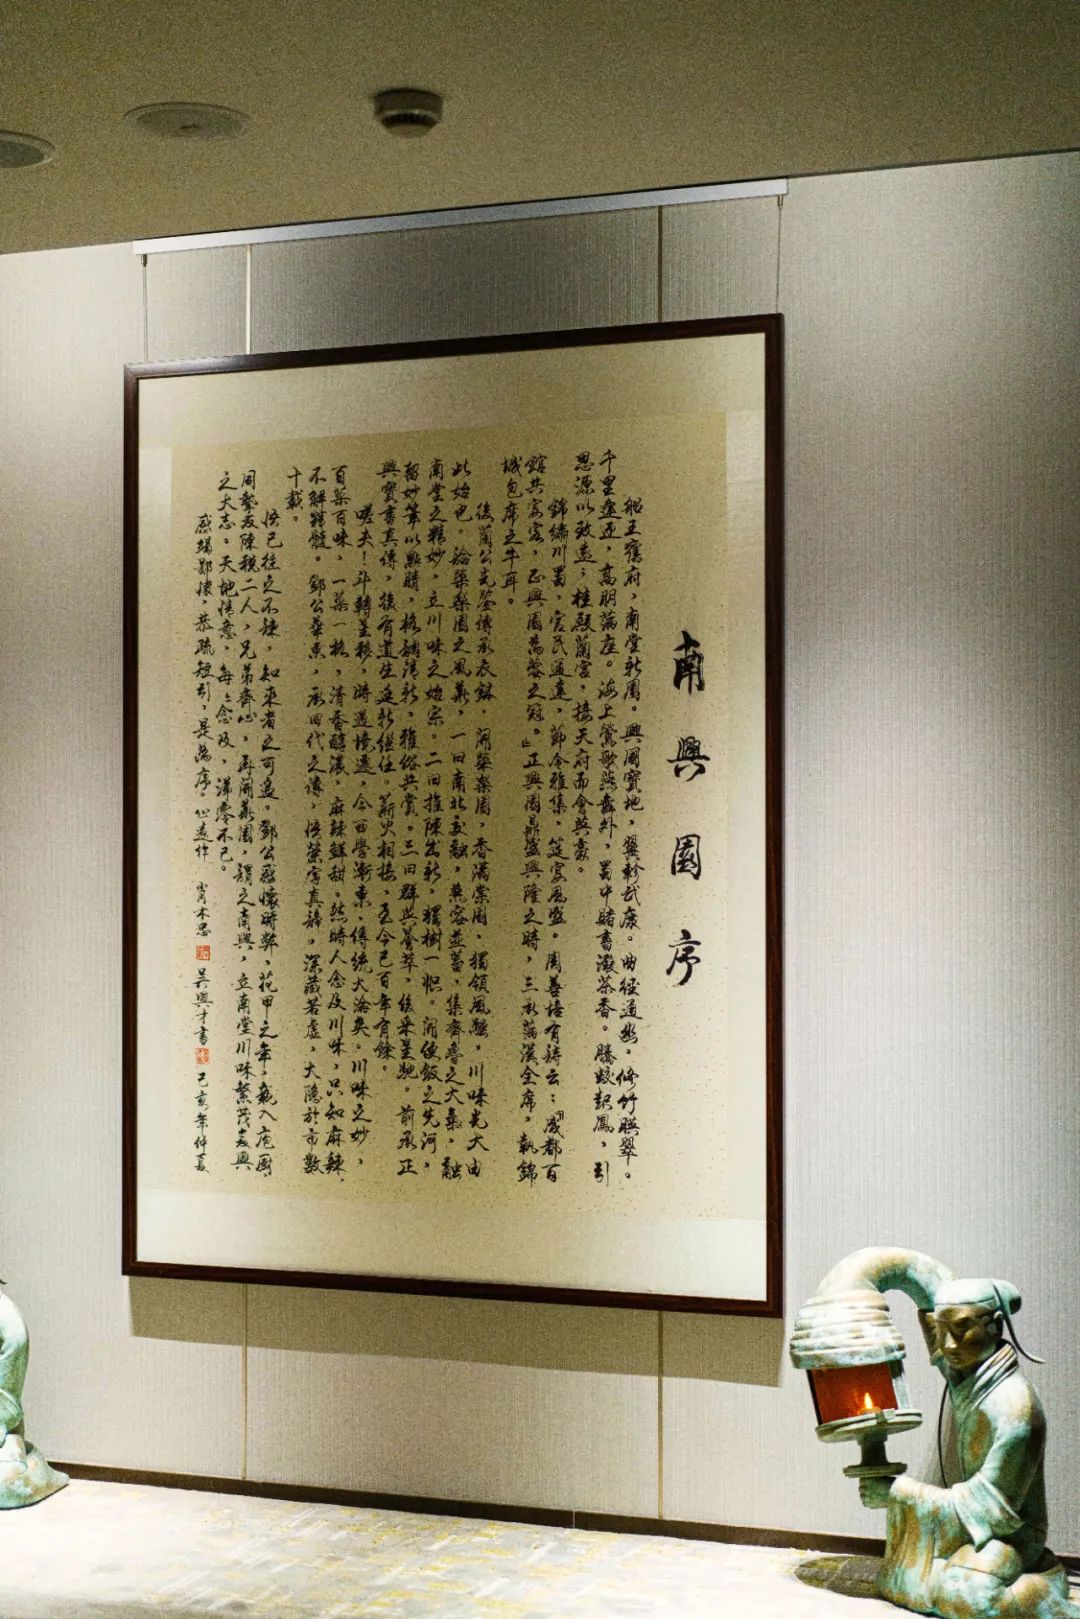 南興園序
船王舊府，南堂新園。興國寶地，翼軫武康。曲徑通幽，修竹映翠。
千里逢迎，高朋滿座。海上鶯歌燕舞外，蜀中賭書潑茶香。騰蛟起鳳，引
思源以致遠；桂殿蘭宮，接天府而會英豪。
錦繡川蜀，官民通達，節令雅集，筵宴風盛。周善培有詩云：『成都百
館共宴客，正興園為蓉之冠。』正興園鼎盛興隆之時，三承滿漢全席，執錦
城包席之牛耳。
後藺公光鑒傳承衣缽，開榮樂園，香滿棠園，獨領風騷，川味光大由
此始也。論榮樂園之風華，一曰南北交融，兼容並蓄，集齊魯之大氣，融
南堂之精妙，立川味之始宗。二曰推陳出新，獨樹一幟。開便飯之先河，
留妙筆以點睛，格調清新，雅俗共賞。三曰群英薈萃，後來星馳。前承正
興寶書真傳，後有道生延新繼任。薪火相接，至今已百年有餘。
嗟夫！斗轉星移，時過境遷，今西學漸東，傳統大淪矣。川味之妙，
百菜百味，一菜一格，清香醇濃，麻辣鮮甜。然時人念及川味，只知麻辣，
不解精髓。鄧公華東，承四代之傳，悟榮字真諦，深藏若虛，大隱於市數
十載。
悟已往之不諫，知來者之可追。鄧公感懷時弊，花甲之年，親入庖廚，
同摯友陳稅二人，兄弟齊心，再開華園，謂之南興，立南堂川味繁茂復興
之大志。天地情意，每每念及，涕零不已。
感竭鄙懷，恭疏短引，是為序。心遠作 肖木思 吳興才書 己亥年仲夏